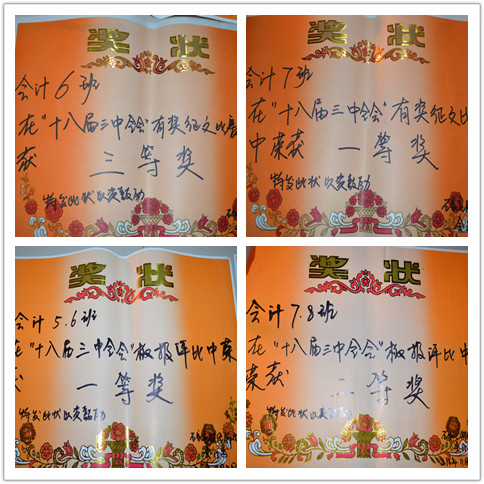 奖状
会计6班
在"十八届三中全会"有奖征文比赛
获 三等奖
特发此状以资鼓励
奖状
会计7班
在"十八届三中全会"有奖征文比
中荣获 一等奖
特发此状以资鼓励
奖状
会计5.6班
在"十八届三中全会"板报评比中荣
获 一等奖
特发此状以资鼓励
奖状
会计7.8班
在"十八届三中全会"板报评比中
荣获 二等奖
特发此状以资鼓励